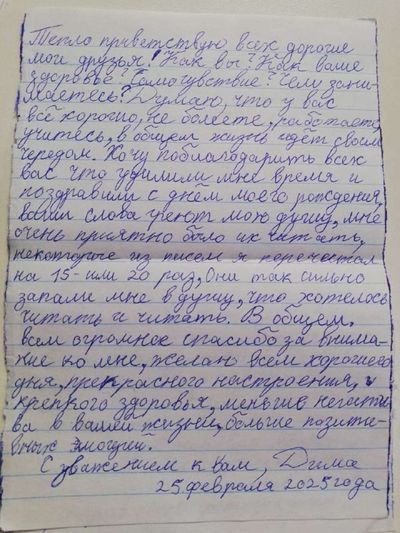 Тепло приветствую всех дорогие
мои друзья! Как вы? Как ваше
здоровье? Самочувствие? Чем зани-
маетесь? Думаю, что у вас
всё хорошо, не болеете, работаете,
учитесь, в общем жизнь идёт своим
чередом. Хочу поблагодарить всех
вас что уделили мне время и
поздравили с днём моего рождения,
ваши слова греют мою душу, мне
очень приятно было их читать,
некоторые из писем я перечитал
на 15- или 20 раз, Они так сильно
запали мне в душу, что хотелось
читать и читать. В общем,
всем огромное спасибо за внима-
ние ко мне, желаю всем хорошего
дня, прекрасного настроения, и
крепкого здоровья, меньше негати-
ва в вашей жизни, больше позити-
вных эмоций.
С уважением к Вам, Дима
25 февраля 2025 года